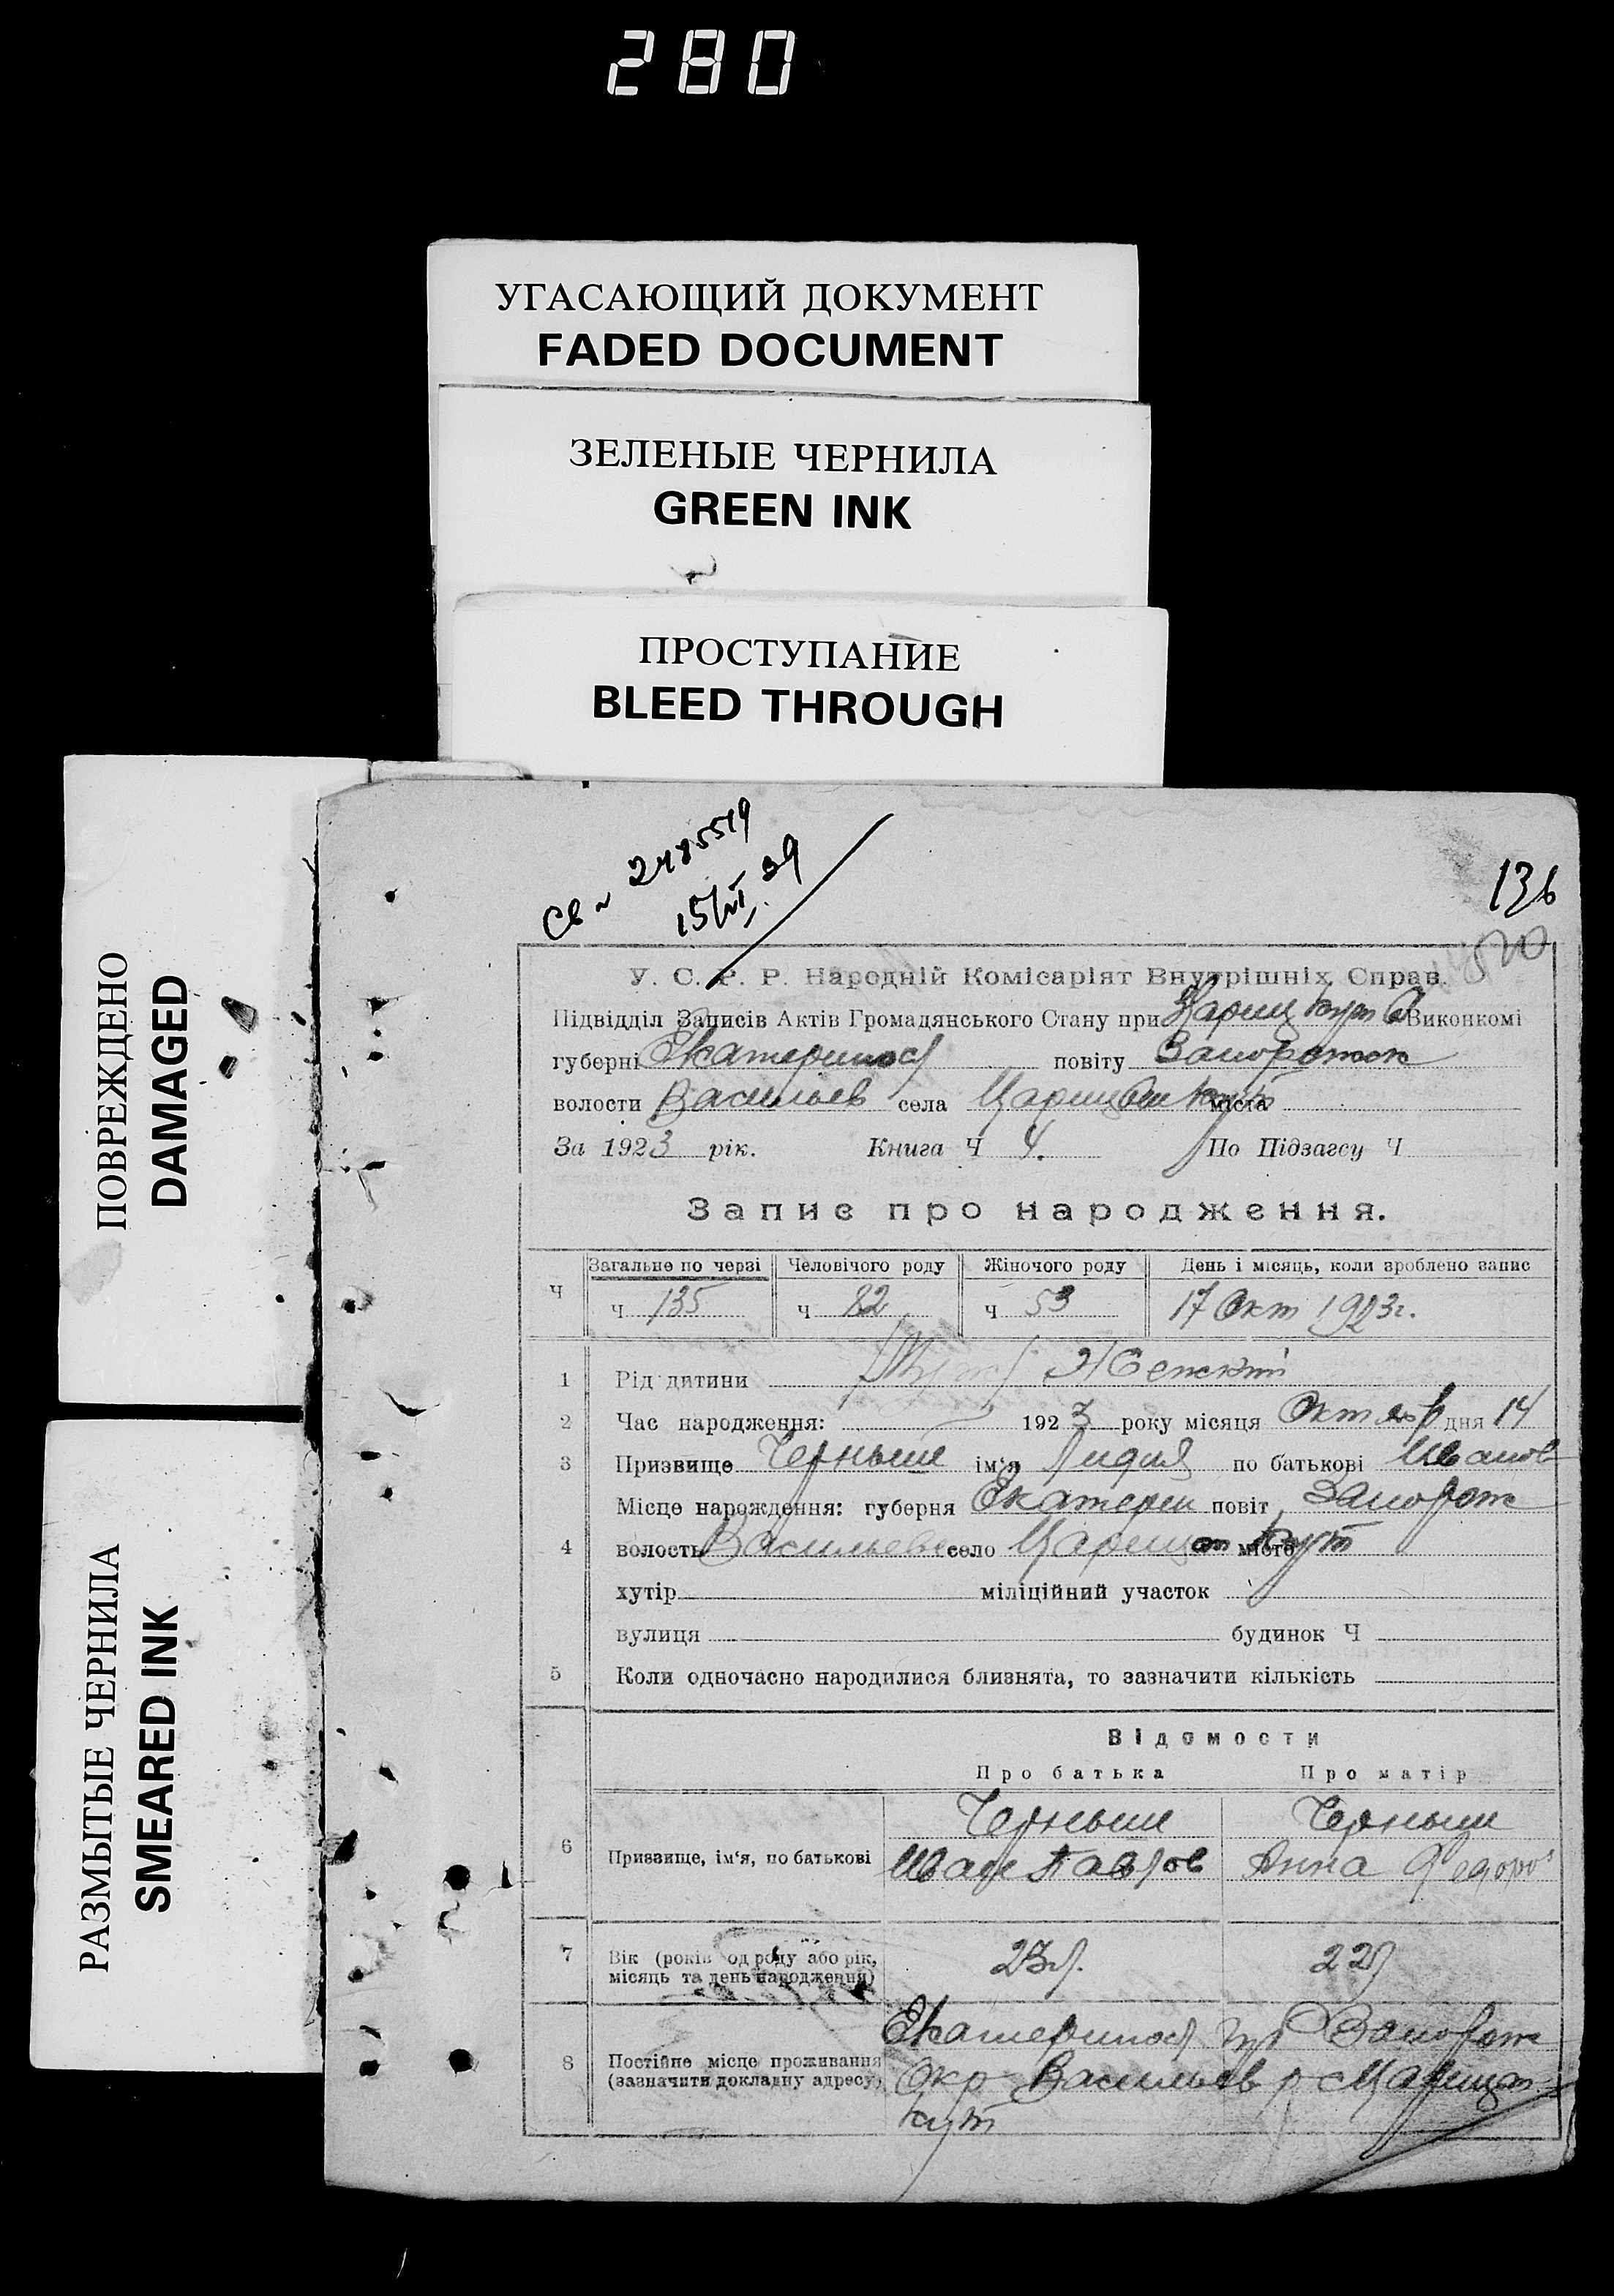 280
УГАСАЮЩИЙ ДОКУМЕНТ
FADED DOCUMENT
ЗЕЛЕНЫЕ ЧЕРНИЛА
GREEN INK
ПРОСТУПАНИЕ
BLEED THROUGH
ПОВРЕЖДЕНО
DAMAGED
РАЗМЫТЫЕ ЧЕРНИЛА
SMEARED INK
Св
15/VI 39
136
У. С. Р. Р. Народній Комісаріят Внутрішніх Справ.
Підвідділ Записів Актів Громадянського Стану при Цариц Кут Виконкомі
губерні Екатеринос повіту Запорожск
волости Васильев села Царицын Кут міста
За 1923 рік. Книга Ч 4. По Підзагсу Ч
Запис про народження.
Ч Загальне по черзі Человічого роду Жіночого роду День і місяць, коли зроблено запис
ч 135 ч 82 ч 53 17 Окт 1923г.
1 Рід дитини Женский
2 Час народження: 1923 року місяця Октяб дня 14
3 Призвище Черныш ім‘я Лидия по батькові Иванов
Місце нарождення: губерня Екатерин повіт Запорож
4 волость Васильевс село Царицын Кут місто
хутір міліційний участок
вулиця будинок Ч
5 Коли одночасно народилися близнята, то зазначити кількість
Відомости
Про батька Про матір
Черныш Черныш
6 Призвище, ім‘я, по батькові Иван Павлов Анна Федоров
7 Вік (років од роду або рік, 23 л. 22 л
місяць та день народження)
Екатеринос губ Запорож
8 Постійне місце проживання
(зазначити докладну адресу) Окр Васильев р с Царицын
Кут